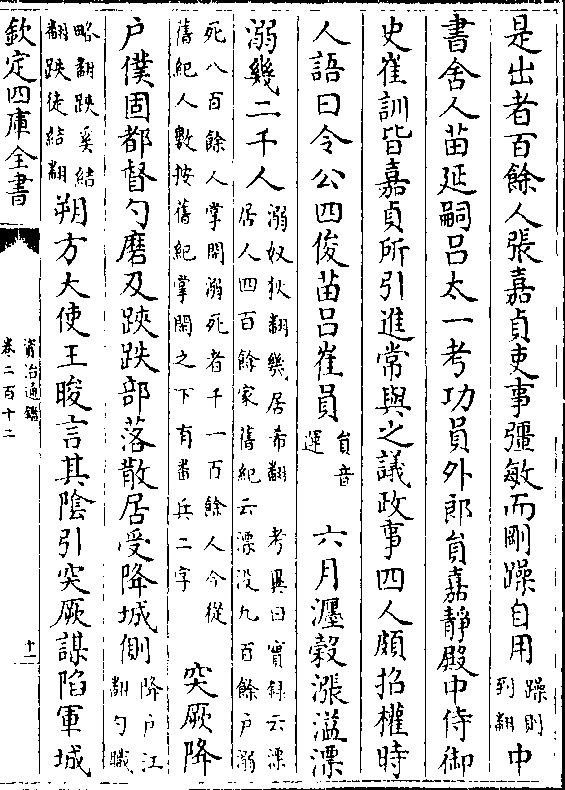 是出者百餘人張嘉貞吏事彊敏而剛躁自用躁則到翻中
書舍人苗延嗣呂太一考功員外郎員嘉靜殿中侍御
史崔訓皆嘉貞所引進常與之議政事四人頗招權時
人語曰令公四俊苗呂崔員員音運六月瀍穀漲溢漂
溺幾二千人溺奴狄翻幾居希翻考異曰實録云漂居人四百餘家舊紀云漂没九百餘户溺
死八百餘人掌閑溺死者千一百餘人今從舊紀人數按舊紀掌閑之下有畨兵二字突厥降
户僕固都督勺磨及䟴跌部落散居受降城側降户江翻勺職
略翻䟴奚結翻跌徒結翻朔方大使王晙言其陰引突厥謀陷軍城
欽定四庫全書
資治通鑑
卷二百十二
十一